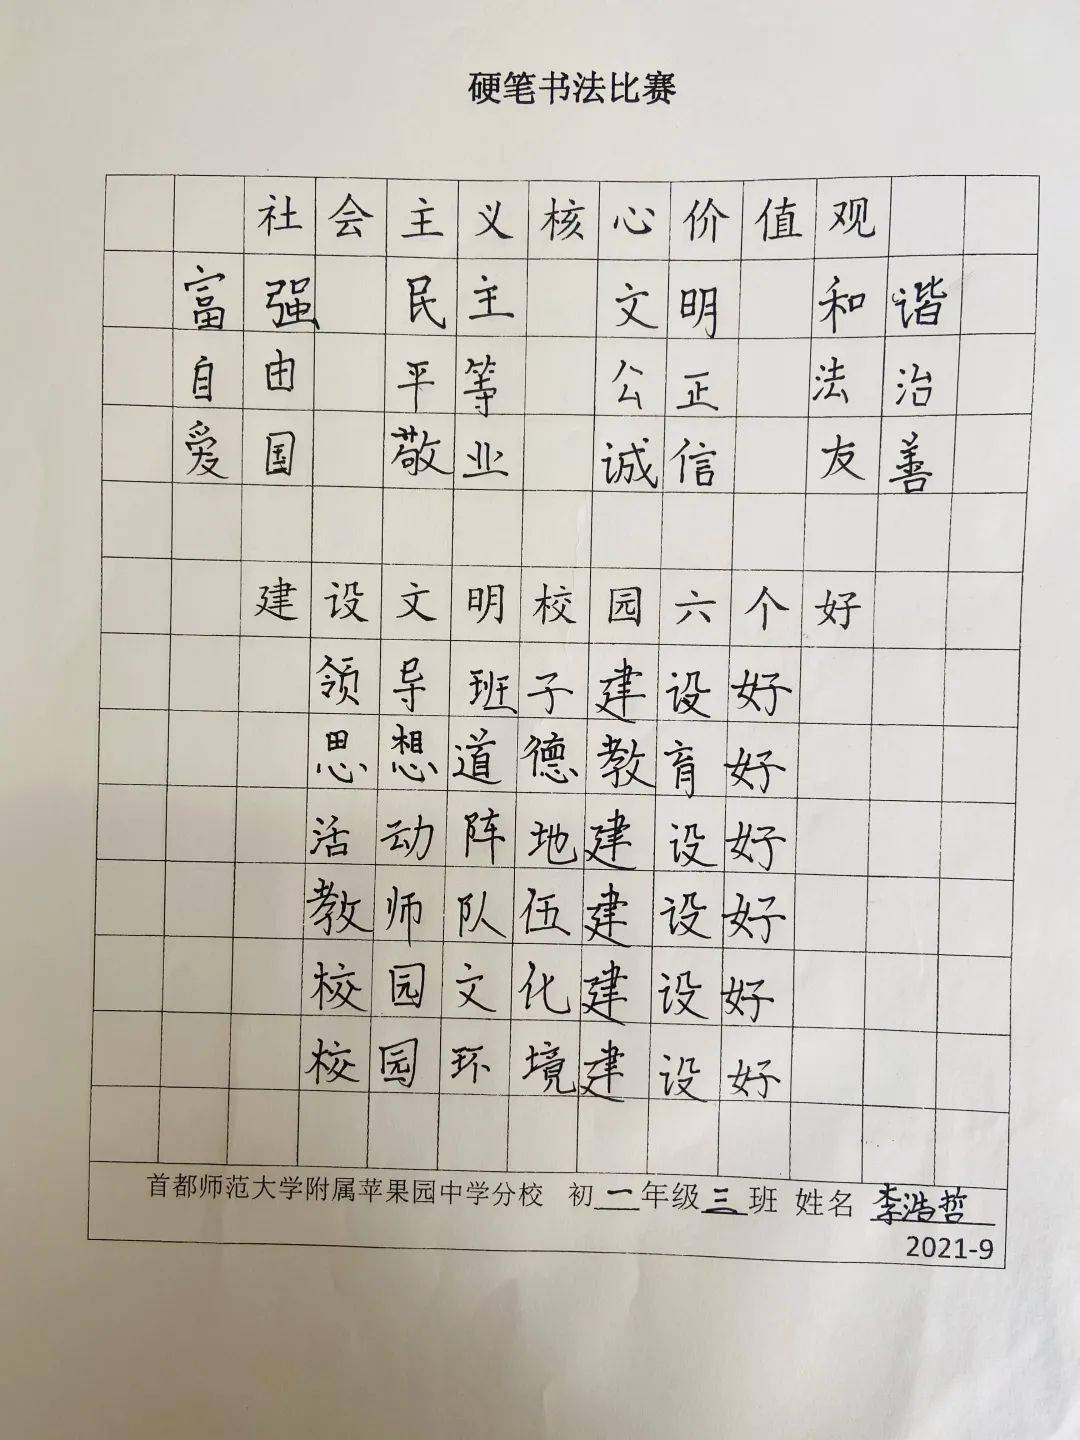 硬笔书法比赛
社会主义核心价值观
富强 民主 文明 和谐
自由 平等 公正 法治
爱国 敬业 诚信 友善
建设文明校园六个好
领导班子建设好
思想道德教育好
活动阵地建设好
教师队伍建设好
校园文化建设好
校园环境建设好
首都师范大学附属苹果园中学分校 初一年级三班 姓名 李浩哲
2021-9